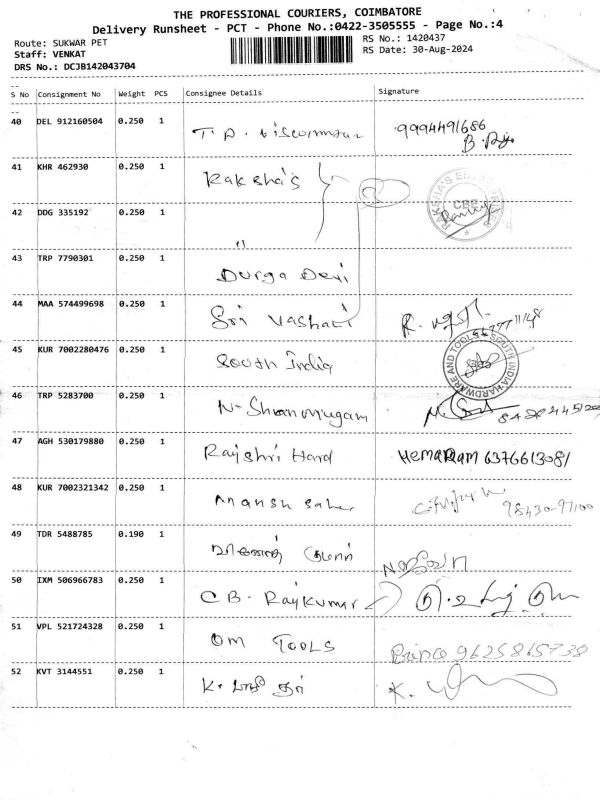 THE PROFESSIONAL COURIERS, COIMBATORE
Delivery Runsheet - PCT - Phone No.:0422-3505555 - Page No.:4
Route: SUKWAR PET
RS No.: 1420437
Staff: VENKAT
RS Date: 30-Aug-2024
DRS No.: DCJB142043704
S No Consignment No Weight PCS Consignee Details Signature
40 DEL 912160504 0.250 1 T.D. 9994491686
41 KHR 462930 0.250 1 Raksha's
42 DDG 335192 0.250 1 "
43 TRP 7790301 0.250 1 Durga Devi
44 MAA 574499698 0.250 1 Sri Vashavi R.
45 KUR 7002280476 0.250 1 South India SOUTH INDIA HARDWARE AND TOOLS
46 TRP 5283700 0.250 1 N. Shanmugam
47 AGH 530179880 0.250 1 Rajshri Hard Hemaram 6376613081
48 KUR 7002321342 0.250 1 98430-97100
49 TDR 5488785 0.190 1
50 IXM 506966783 0.250 1 C B. Rajkumar
51 VPL 521724328 0.250 1 OM TOOLS Prince 9625815738
52 KVT 3144551 0.250 1 K. K.